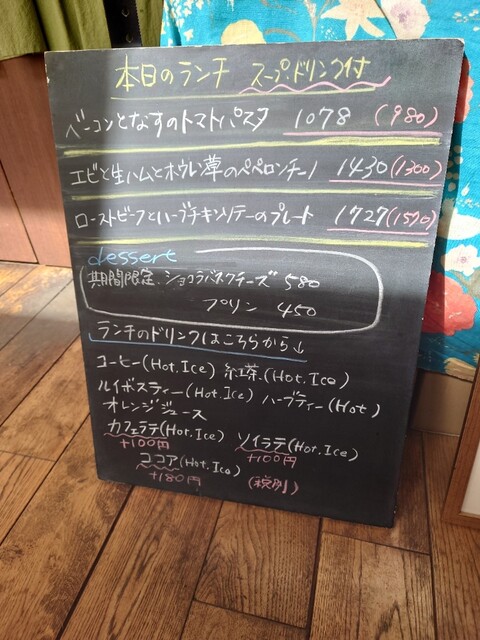 本日のランチ スープ・ドリンク付
ベーコンとなすのトマトパスタ 1078 (980)
エビと生ハムとホウレン草のペペロンチーノ 1430(1300)
ローストビーフとハーブチキンソテーのプレート 1727(1570)
dessert
期間限定、ショコラバスクチーズ 580
プリン 450
ランチのドリンクはこちらから↓
コーヒー(Hot.Ice) 紅茶.(Hot.Ice)
ルイボスティー(Hot.Ice) ハーブティー(Hot)
オレンジジュース
カフェラテ(Hot.Ice) ソイラテ(Hot.Ice)
+100円 +100円
ココア(Hot.Ice)
+180円 (税別)